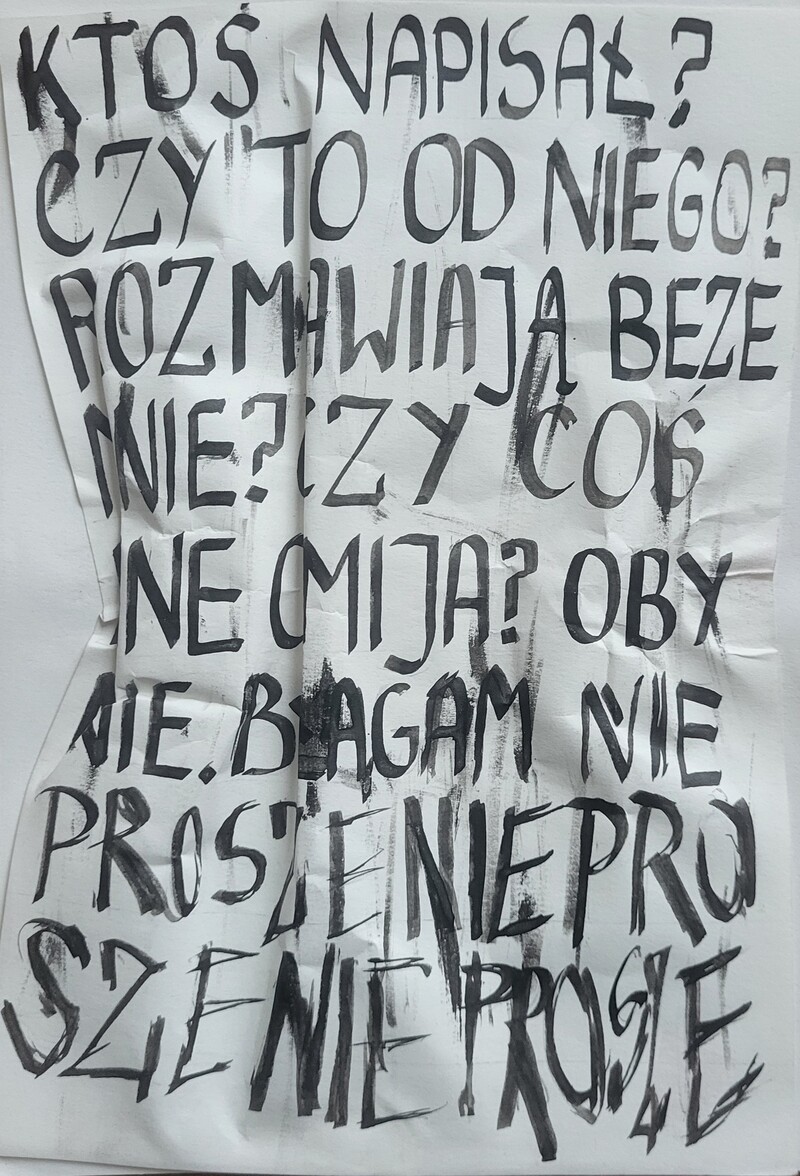 KTOŚ NAPISAŁ?
CZY TO OD NIEGO?
ROZMAWIAJĄ BEZE
MNIE? CZY COŚ
MNIE OMIJA? OBY
NIE. BŁAGAM NIE
PROSZE NIE PRO
SZE NIE PROSZE